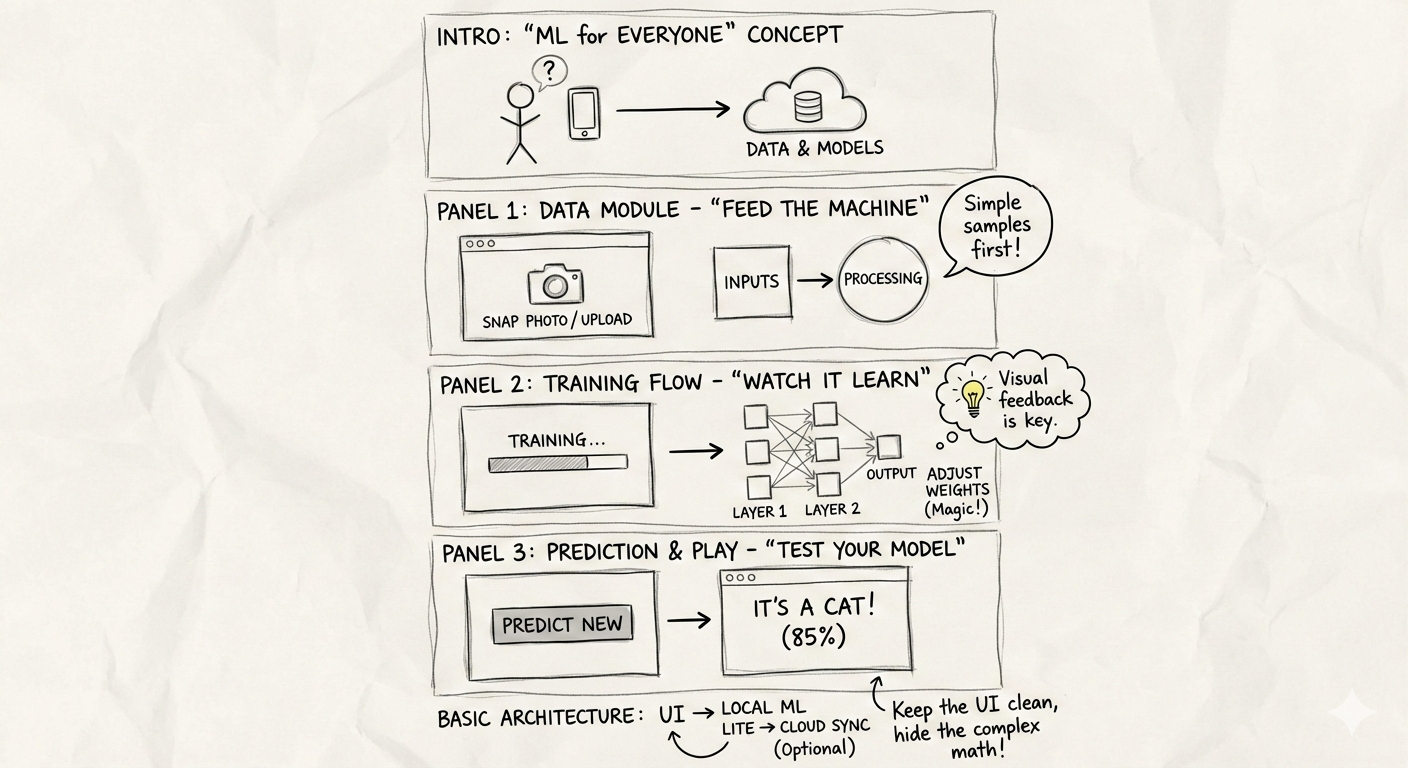 INTRO: “ML for EVERYONE” CONCEPT
?
DATA & MODELS
PANEL 1: DATA MODULE - “FEED THE MACHINE”
Simple
samples
first!
SNAP PHOTO / UPLOAD
INPUTS
PROCESSING
PANEL 2: TRAINING FLOW - “WATCH IT LEARN”
Visual
feedback
is key.
TRAINING...
LAYER 1
LAYER 2
OUTPUT
ADJUST
WEIGHTS
(Magic!)
PANEL 3: PREDICTION & PLAY - “TEST YOUR MODEL”
PREDICT NEW
IT'S A CAT!
(85%)
BASIC ARCHITECTURE: UI → LOCAL ML
LITE → CLOUD SYNC
(Optional)
Keep the UI clean,
hide the complex
math!